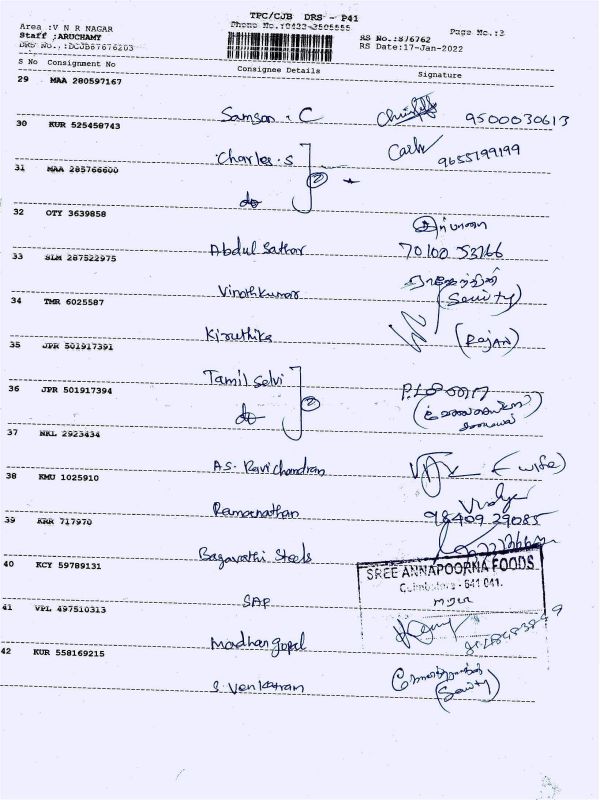 TPC/CJB DRS - P41
Area :V N R NAGAR
Phone No.:0433-3505555
Page No.:3
Staff :ARUCHAMY
RS No.:876762
DRS No.:DCJB87676203
RS Date:17-Jan-2022
S No Consignment No Consignee Details Signature
29 MAA 280597167
Samson . C 9500030613
30 KUR 525458743
Charles . S 9655199199
31 MAA 285766600
do 2
32 OTY 3639858
Abdul Sathar 70100 53766
33 SLM 287522975
Vinothkumar (Security)
34 TMR 6025587
Kiruthika (RAJAN)
35 JPR 501917391
Tamil Selvi
36 JPR 501917394
do 2
37 NKL 2923434
A.S. Ravichandran (wife)
38 KMU 1025910
Ramanathan 98409 29085
39 KRR 717970
Bagavathi Steels
40 KCY 59789131
SREE ANNAPOORNA FOODS
Coimbatore - 641 041.
SAP
41 VPL 497510313
Madhan gopal
42 KUR 558169215
S. Venkatran (Security)